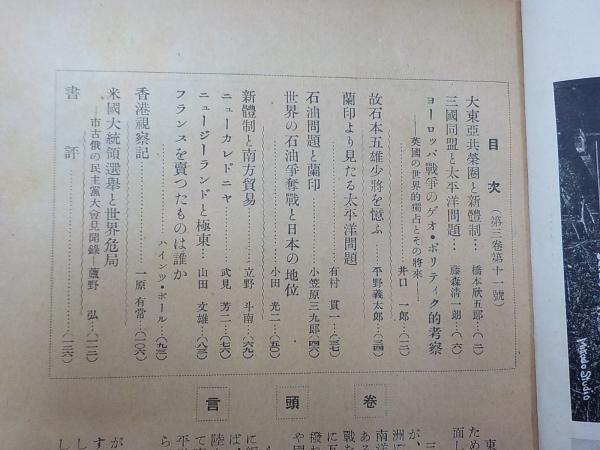 目次（第三卷第十一號）
大東亞共榮圈と新體制… 橋本欣五郎…（二）
三國同盟と太平洋問題… 藤森淸一朗…（六）
ヨーロッパ戰爭のゲオ・ポリティク的考察
――英國の世界的獨占とその將來―― 井口一郎…（一二）
故石本五雄少將を憶ふ… 平野義太郎…（三四）
蘭印より見たる太平洋問題 有村貫一…（三七）
石油問題と蘭印 小笠原三九郎（四六）
世界の石油爭奪戰と日本の地位
小田光二…（五〇）
新體制と南方貿易 立野斗南…（六九）
ニューカレドニヤ 武見芳二…（七六）
ニュージーランドと極東… 山田文雄…（八三）
フランスを賣つたものは誰か
ハインツ・ポール…（九三）
香港視察記… 一原有常…（一〇六）
米國大統領選擧と世界危局
――市古俄の民主黨大會見聞錄――蘆野弘…（一一二）
書評…（一三六）
卷頭言
東
ため
面し
三
が、
洲に
南洋
ある
戰を
に瓦
撥れ
や國
に
ば、
て
陸
平
ら
が
す
し
Yatsuo Studio